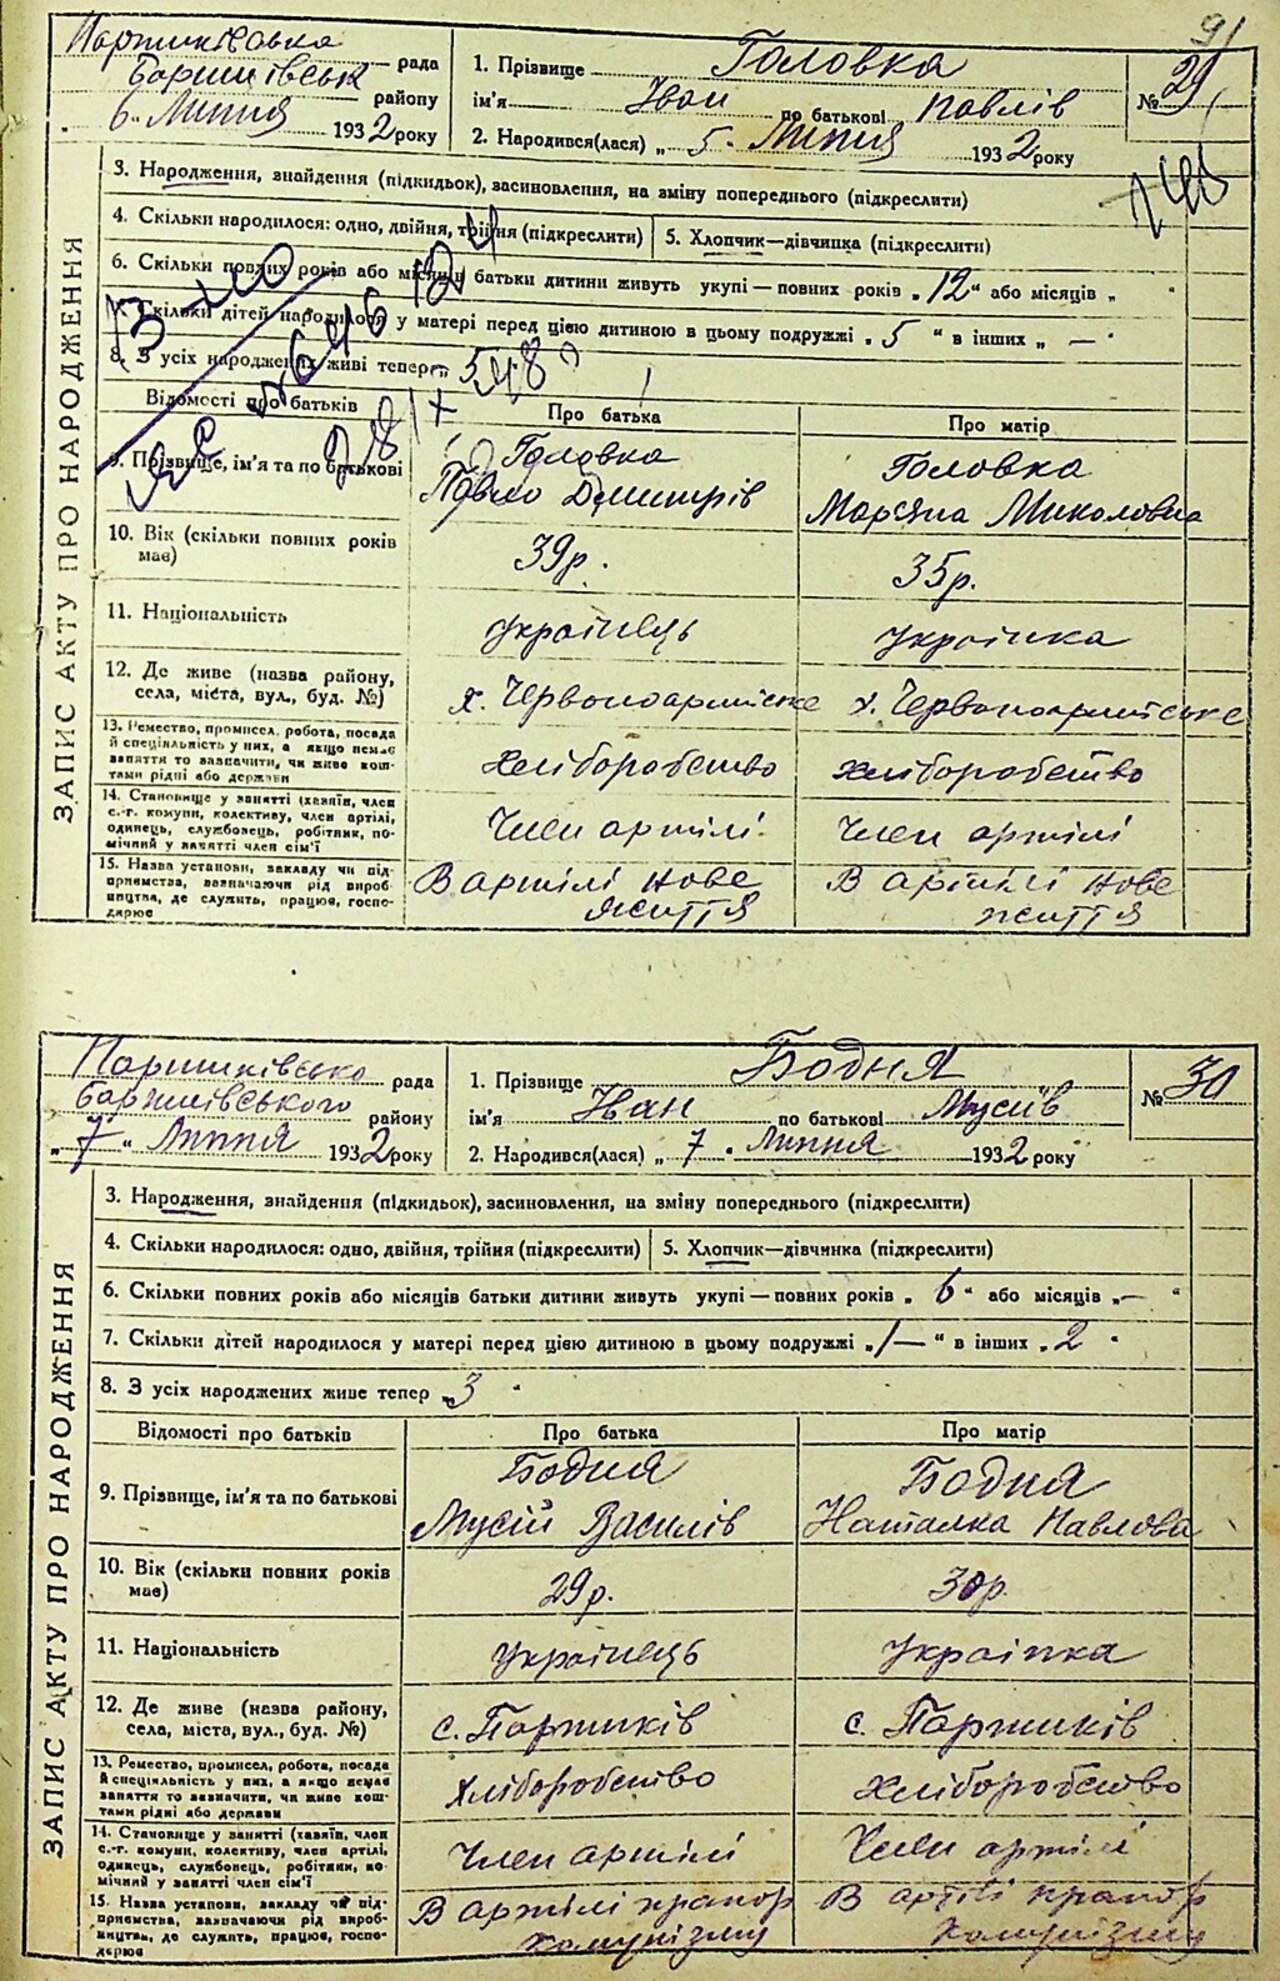 91
Паришківська рада
Баришівськ району
"6" Липня 1932 року
1. Прізвище Головка
ім'я Іван по батькові Павлів
2. Народився(лася) „ 5 " Липня 1932 року
№ 29
ЗАПИС АКТУ ПРО НАРОДЖЕННЯ
3. Народження, знайдення (підкидьок), засиновлення, на зміну попереднього (підкреслити)
4. Скільки народилося: одно, двійня, трійня (підкреслити) 5. Хлопчик—дівчинка (підкреслити)
6. Скільки повних років або місяців батьки дитини живуть укупі — повних років „ 12 " або місяців „ "
7. Скільки дітей народилося у матері перед цією дитиною в цьому подружжі „ 5 " в інших „ — "
8. З усіх народжених живі тепер „ 5
Відомості про батьків Про батька Про матір
9. Прізвище, ім'я та по батькові
Головка Головка
Павло Дмитрів Мар'яна Миколовна
10. Вік (скільки повних років має) 39 р. 35 р.
11. Національність українець українка
12. Де живе (назва району, х. Червоноармійське х. Червоноармійське
села, міста, вул., буд. №)
13. Ремество, промисел, робота, посада
й спеціяльність у них, а якщо немає Хліборобство хліборобство
заняття то зазначити, чи живе кош-
тами рідні або держави
14. Становище у занятті (хазяїн, член
с.-г. комуни, колективу, член артілі, Член артілі Член артілі
одинець, службовець, робітник, по-
мічний у занятті член сім'ї
15. Назва установи, закладу чи під- В артілі нове В артілі нове
приємства, зазначаючи рід вироб- життя життя
ництва, де служить, працює, госпо-
дарює
Паришківсько рада
Баришівського району
„ 7 " Липня 1932 року
1. Прізвище Бодня
ім'я Іван по батькові Мусіїв
2. Народився(лася) „ 7 " Липня 1932 року
№ 30
ЗАПИС АКТУ ПРО НАРОДЖЕННЯ
3. Народження, знайдення (підкидьок), засиновлення, на зміну попереднього (підкреслити)
4. Скільки народилося: одно, двійня, трійня (підкреслити) 5. Хлопчик—дівчинка (підкреслити)
6. Скільки повних років або місяців батьки дитини живуть укупі — повних років „ 6 " або місяців „ — "
7. Скільки дітей народилося у матері перед цією дитиною в цьому подружжі „ 1 — " в інших „ 2 "
8. З усіх народжених живе тепер „ 3 "
Відомості про батьків Про батька Про матір
Бодня Бодня
9. Прізвище, ім'я та по батькові
Мусій Василів Наталка Павлова
10. Вік (скільки повних років має) 29 р. 30 р.
11. Національність українець українка
12. Де живе (назва району, с. Паришків с. Паришків
села, міста, вул., буд. №)
13. Ремество, промисел, робота, посада
й спеціяльність у них, а якщо немає Хліборобство Хліборобство
заняття то зазначити, чи живе кош-
тами рідні або держави
14. Становище у занятті (хазяїн, член
с.-г. комуни, колективу, член артілі, Член артілі Член артілі
одинець, службовець, робітник, по-
мічний у занятті член сім'ї
15. Назва установи, закладу чи під- В артілі прапор В артілі прапор
приємства, зазначаючи рід вироб- комунізму комунізму
ництва, де служить, працює, госпо-
дарює